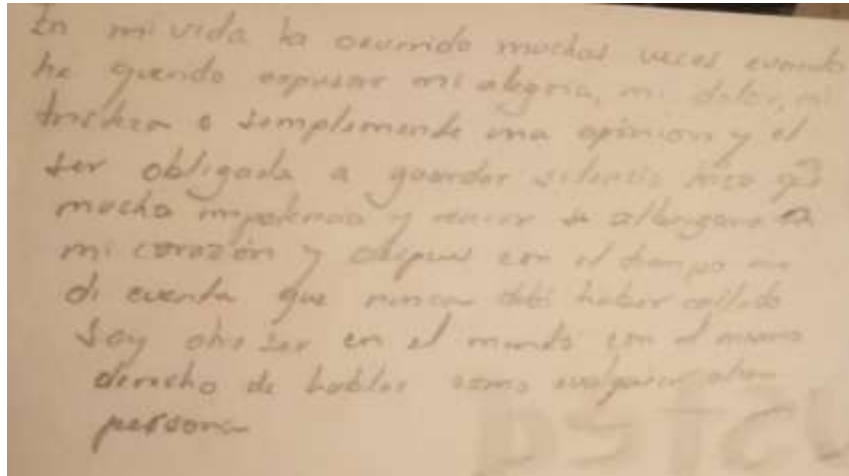 En mi vida ha ocurrido muchas veces cuando
he querido expresar mi alegria, mi dolor, mi
tristeza o simplemente una opinion y el
ser obligada a guardar silencio hizo q
mucha impotencia y rencor se albergara en
mi corazón y despues con el tiempo me
di cuenta que nunca debí haber callado
soy otro ser en el mundo con el mismo
derecho de hablar como cualquier otra
persona